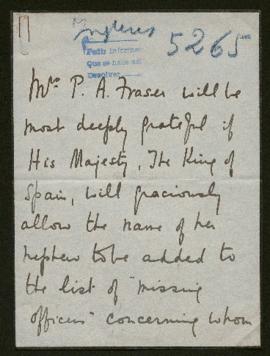 Ingleses
5265
Pedir informes
Que se haga así
Devolver
Mrs P. A. Fraser will be
most deeply grateful if
His Majesty, The King of
Spain, will graciously
allow the name of her
nephew to be added to
the list of "missing
officers" concerning whom